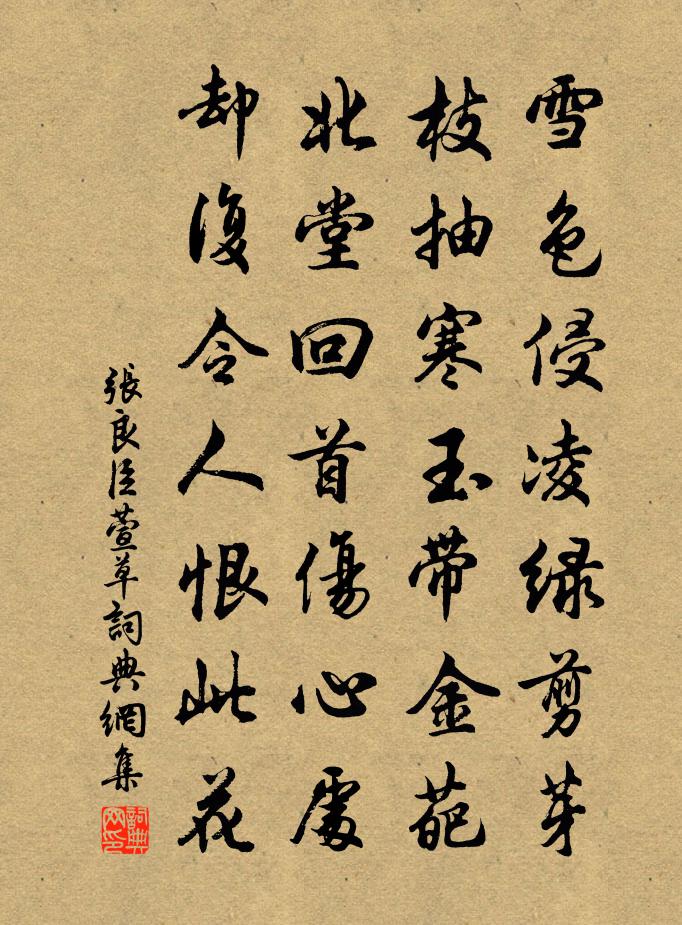 雪色侵凌緑剪芽
枝抽寒玉帶金葩
北堂回首傷心處
却復令人恨此花
張良臣萱草詞典網集
詞典网印